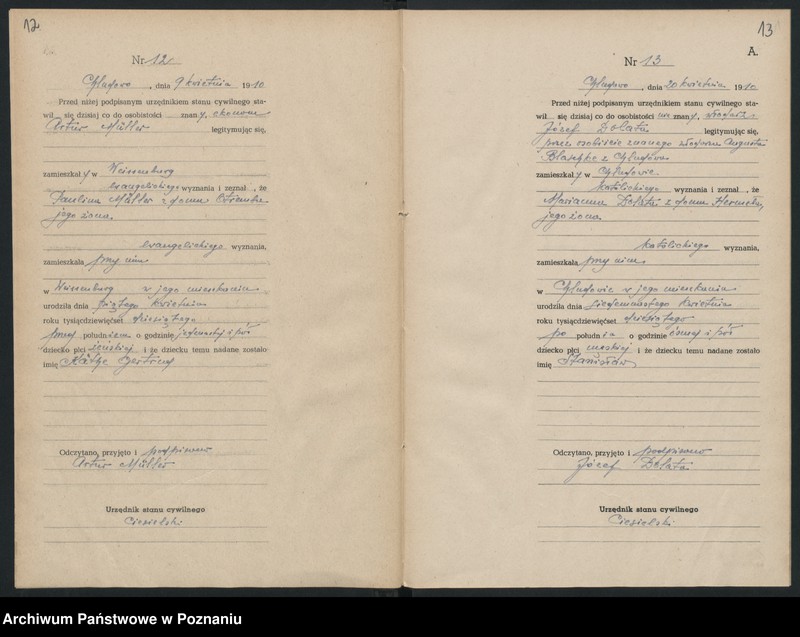 12
Nr 12
Chludowo, dnia 9 kwietnia 1910
Przed niżej podpisanym urzędnikiem stanu cywilnego sta-
wił się dzisiaj co do osobistości znany, ekonom
Artur Müller legitymując się,
zamieszkały w Weissenburg
ewangelickiego wyznania i zeznał, że
Paulina Müller z domu
jego żona
ewangelickiego wyznania,
zamieszkała przy nim
w Weissenburg w jego mieszkaniu
urodziła dnia piątego kwietnia
roku tysiącdziewięćset dziesiątego
przed południem o godzinie jedenastej i pół
dziecko płci żeńskiej i że dziecku temu nadane zostało
imię Käthe Gertrud
Odczytano, przyjęto i podpisano
Artur Müller
Urzędnik stanu cywilnego
Ciesielski
13
A.
Nr 13
Chludowo, dnia 20 kwietnia 1910
Przed niżej podpisanym urzędnikiem stanu cywilnego sta-
wił się dzisiaj co do osobistości nie znany,
Józef Dolata legitymując się,
przez osobiście znanego Augusta
z Chludowa
zamieszkały w Chludowie
katolickiego wyznania i zeznał, że
Marianna Dolata z domu
jego żona
katolickiego wyznania,
zamieszkała przy nim
w Chludowie w jego mieszkaniu
urodziła dnia siedemnastego kwietnia
roku tysiącdziewięćset dziesiątego
po południu o godzinie ósmej i pół
dziecko płci męskiej i że dziecku temu nadane zostało
imię Stanisław
Odczytano, przyjęto i podpisano
Józef Dolata
Urzędnik stanu cywilnego
Ciesielski
Archiwum Państwowe w Poznaniu